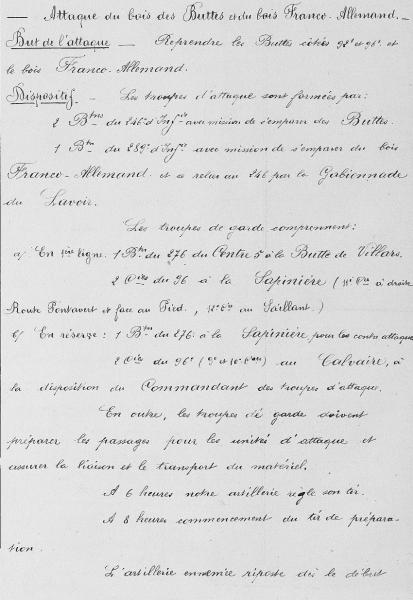 — Attaque du bois des Buttes et du bois Franco-Allemand. —
But de l'attaque — Reprendre les Buttes côtés 92 et 96. et
le bois Franco-Allemand.
Dispositif — Les troupes d'attaque sont formées par:
2 Btns du 246e d'Infie avec mission de s'emparer des Buttes.
1 Btn du 289e d'Infie avec mission de s'emparer du bois
Franco-Allemand et se relier au 246 par la Gabionnade
du Lavoir.
Les troupes de garde comprennent:
a/ En 1ère ligne. 1 Btn du 276 du Centre 5 à la Butte de Villars.
2 Cies du 96 à la Sapinière (11e Cie à droite
Route Pontavert et face au Pird, 12e Cie au Saillant.)
b/ En réserve: 1 Btn du 276. à la Sapinière, pour les contre attaques
2 Cies du 96e (9e et 10e Cies) au Calvaire, à
la disposition du Commandant des troupes d'attaque.
En outre, les troupes de garde doivent
préparer les passages pour les unités d'attaque et
assurer la liaison et le transport du matériel.
A 6 heures notre artillerie règle son tir.
A 8 heures commencement du tir de prépara-
tion.
L'artillerie ennemie riposte dès le début